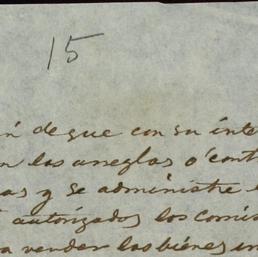 15
de que con su inte
las arreglas ó cont
as y se administre
autorizados los comis
a vender los bienes in